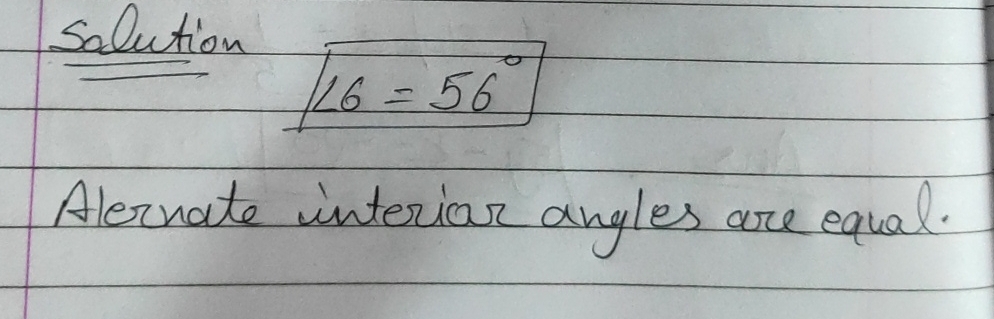 Solution
∠6 = 56°
Alernate interior angles are equal.